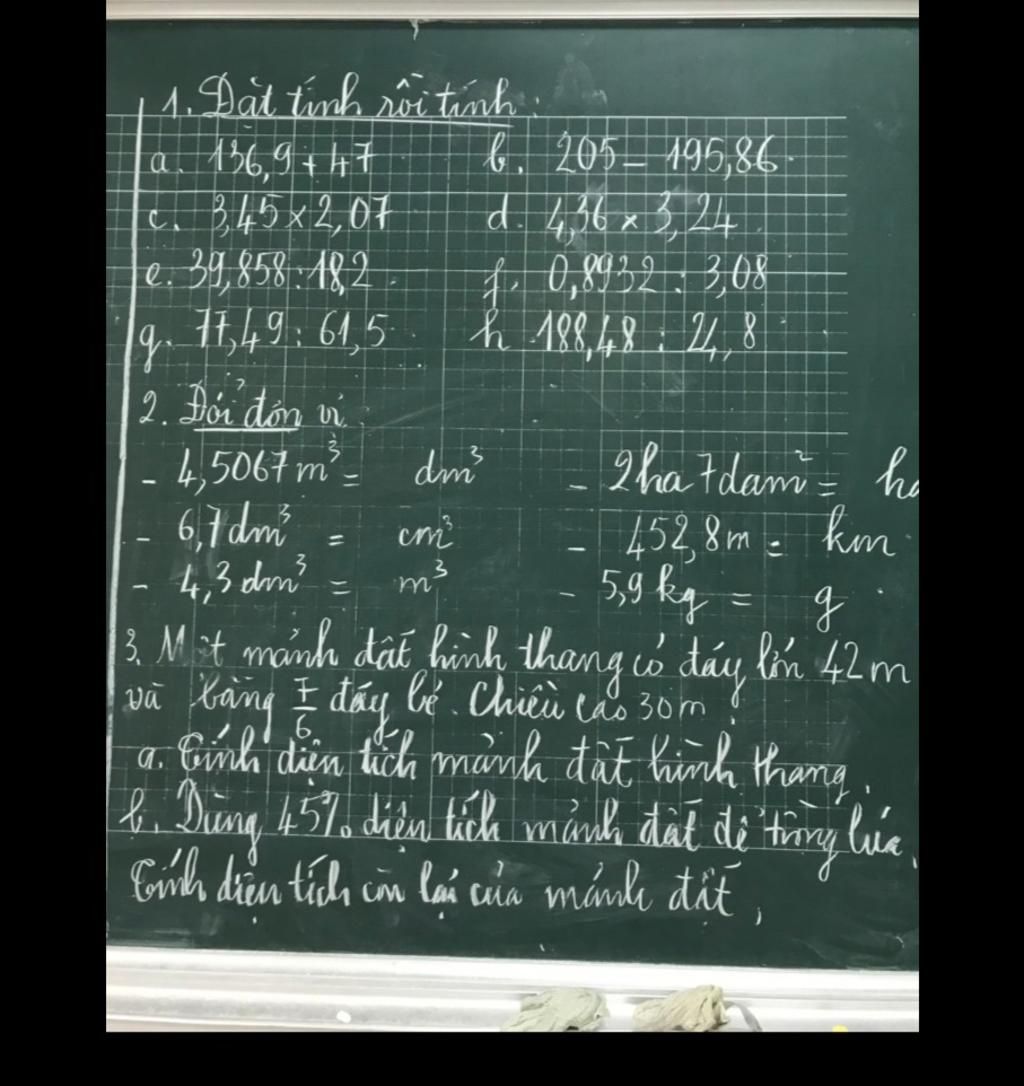 1. Đặt tính rồi tính:
a. 136,9 + 47 b. 205 - 195,86
c. 3,45 × 2,07 d. 4,36 × 3,24
e. 39,858 : 18,2 f. 0,8932 : 3,08
g. 77,49 : 61,5 h 188,48 : 24,8
2. Đổi đơn vị
- 4,5067 m³ = dm³ - 2ha 7dam² = ha
- 6,7 dm³ = cm³ - 452,8m = km
- 4,3 dm³ = m³ - 5,9 kg = g
3. Một mảnh đất hình thang có đáy lớn 42 m
và bằng 7/6 đáy bé. Chiều cao 30m.
a. Tính diện tích mảnh đất hình thang.
b. Dùng 45% diện tích mảnh đất để trồng lúa.
Tính diện tích còn lại của mảnh đất.